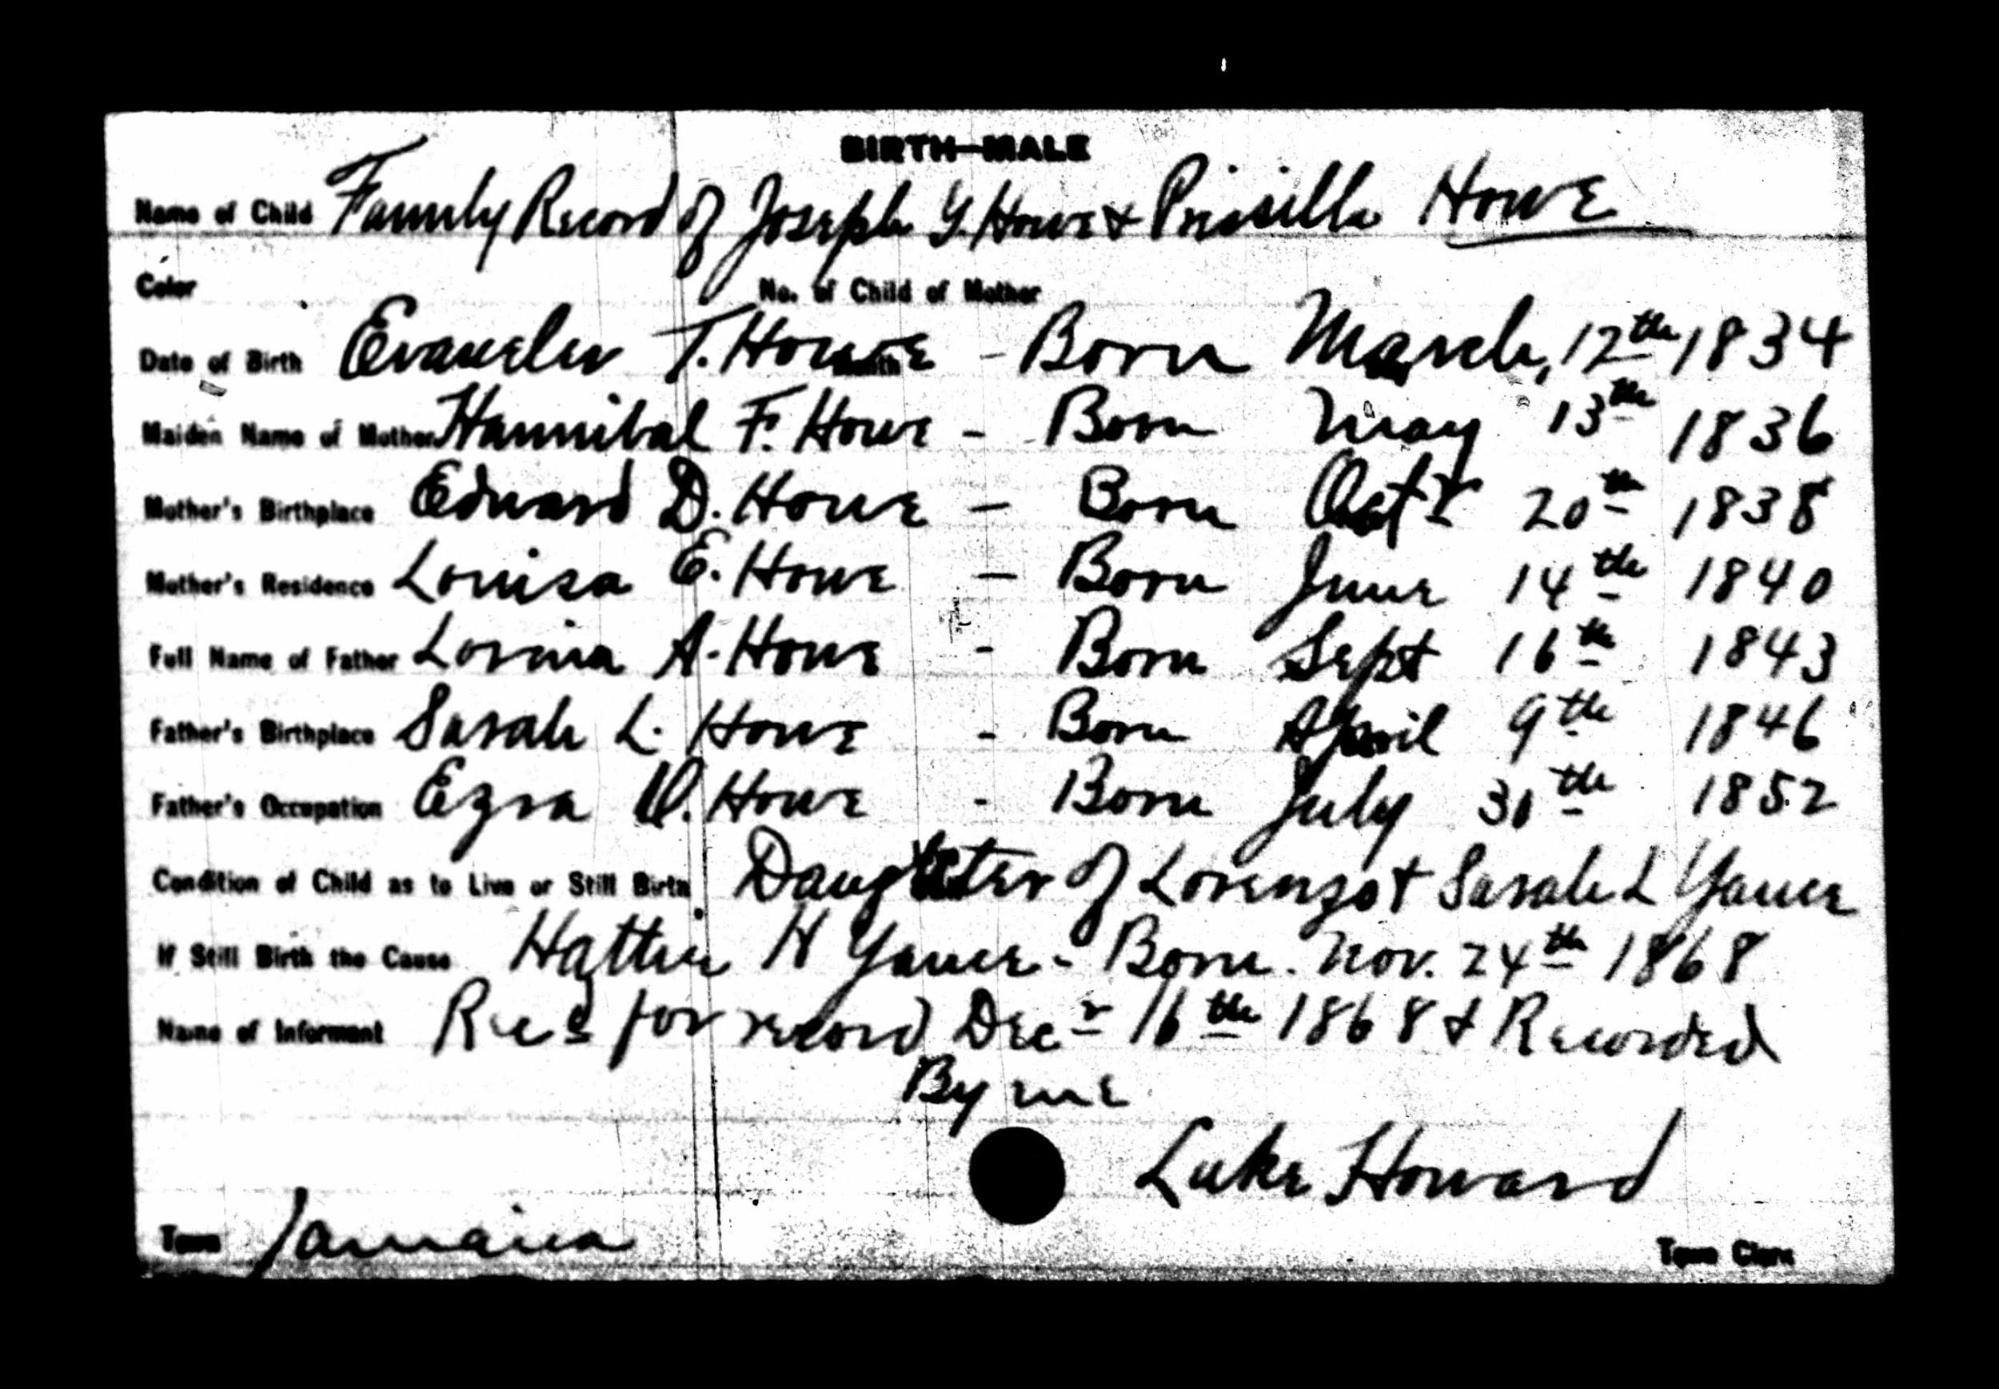 BIRTH—MALE
Name of Child Family Record of Joseph Y. Howe & Prissilla Howe
Color No. of Child of Mother
Date of Birth T. Howe - Born March, 12th 1834
Maiden Name of Mother Hannibal F. Howe - Born May 13th 1836
Mother's Birthplace Edward D. Howe - Born Octr 20th 1838
Mother's Residence Louisa E. Howe - Born June 14th 1840
Full Name of Father Lovina A. Howe - Born Sept 16th 1843
Father's Birthplace Sarah L. Howe - Born April 9th 1846
Father's Occupation Ezra Howe - Born July 30th 1852
Condition of Child as to Live or Still Birth Daughter of Lorenzo & Sarah L
If Still Birth the Cause Hattie H - Born. Nov. 24th 1868
Name of Informant Recd for record Decr 16th 1868 & Recorded
By me
Luke Howard
Town Jamaica Town Clerk